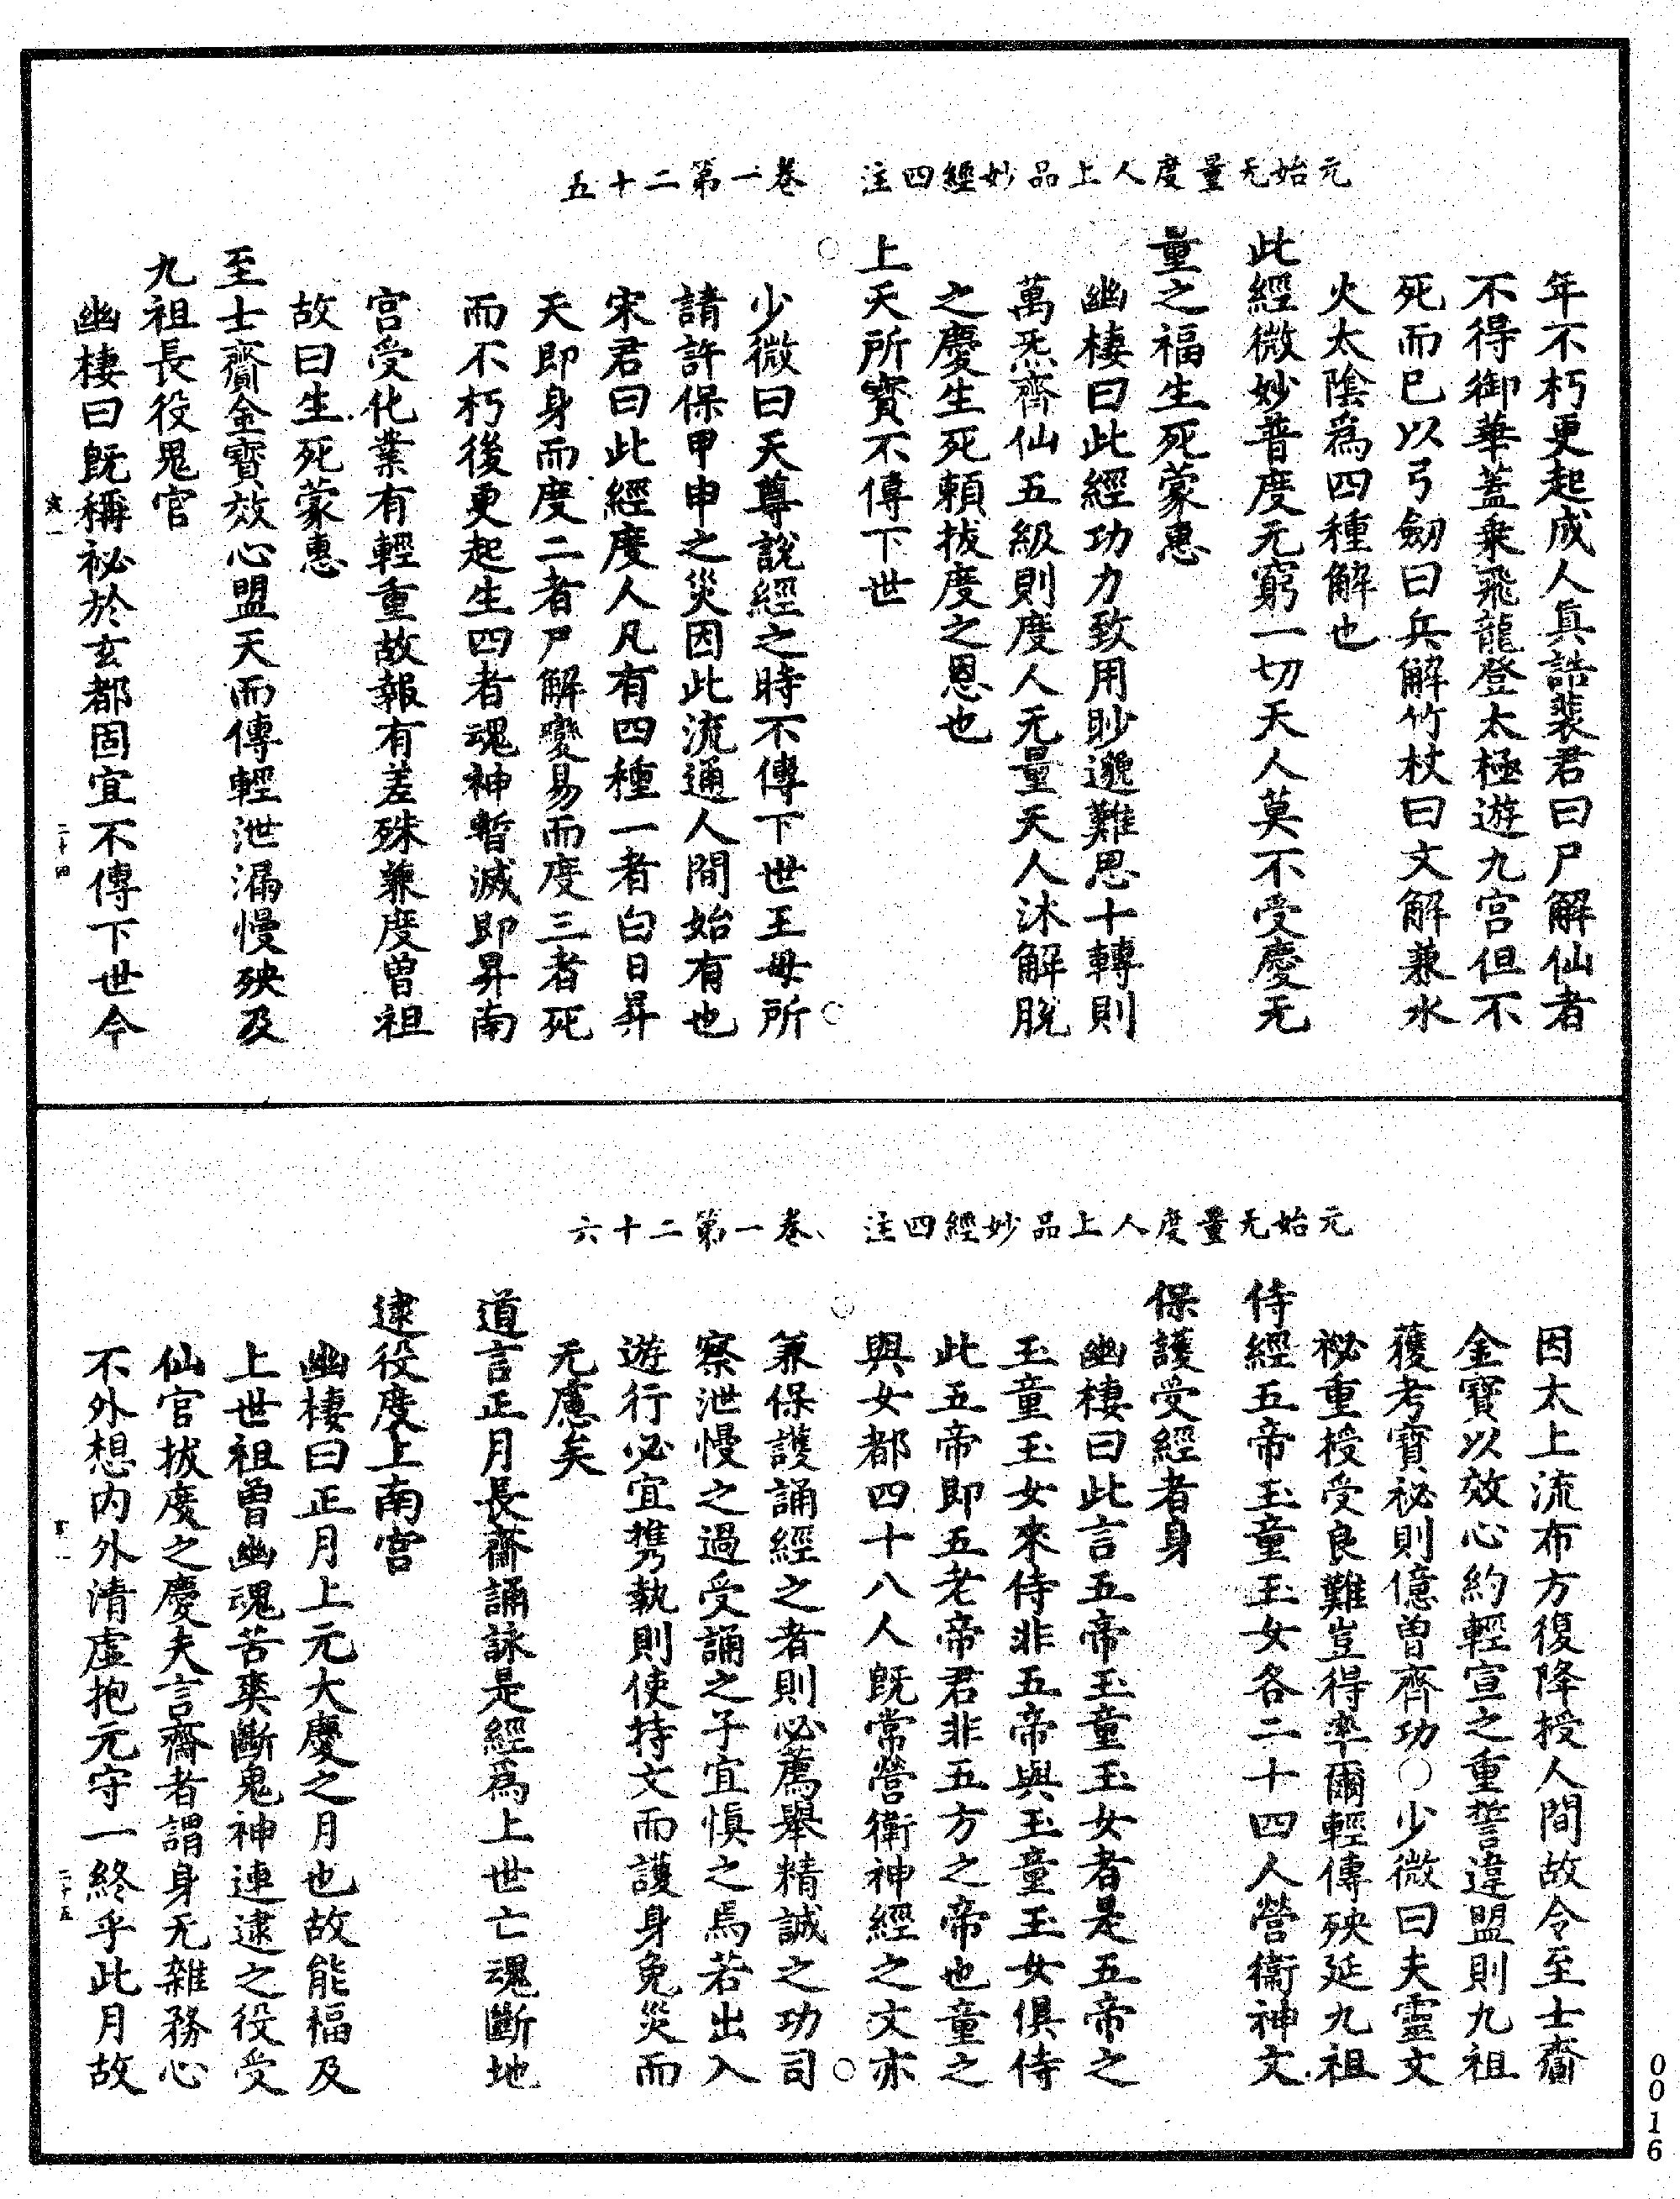 元始无量度人上品妙經四注　卷一第二十五
年不朽更起成人真誥裴君曰尸解仙者
不得御華蓋乗飛龍登太極遊九宮但不
死而巳以弓劒曰兵解竹杖曰文解兼水
火太陰為四種解也
此經微妙普度无窮一切天人莫不受慶无
量之福生死蒙惠
幽棲曰此經功力致用眇邈難思十轉則
萬炁齊仙五級則度人无量天人沐解脫
之慶生死賴拔度之恩也
上天所寳不傳下世
少微曰天尊說經之時不傳下世王母所
請許保甲申之災因此流通人間始有也
宋君曰此經度人凡有四種一者白日昇
天即身而度二者尸解變易而度三者死
而不朽後更起生四者魂神暫滅即昇南
宮受化業有輕重故報有差殊兼度曽祖
故曰生死蒙惠
至士齎金寳效心盟天而傳輕泄漏慢殃及
九祖長役鬼官
幽棲曰旣稱祕於玄都固宜不傳下世今
二十四
元始无量度人上品妙經四注　卷一第二十六
因太上流布方復降授人間故令至士齎
金寳以效心約輕宣之重誓違盟則九祖
獲考寳祕則億曽齊功○少微曰夫靈文
祕重授受良難豈得率爾輕傳殃延九祖
侍經五帝玉童玉女各二十四人營衞神文
保護受經者身
幽棲曰此言五帝玉童玉女者是五帝之
玉童玉女來侍非五帝與玉童玉女俱侍
此五帝即五老帝君非五方之帝也童之
與女都四十八人旣常營衛神經之文亦
兼保護誦經之者則必薦舉精誠之功司
察泄慢之過受誦之子宜慎之焉若出入
遊行必宜携執則使持文而護身免災而
无慮矣
道言正月長齋誦詠是經為上世亡魂斷地
逮役度上南宮
幽棲曰正月上元大慶之月也故能福及
上世祖曽幽魂苦爽斷鬼神連逮之役受
仙官拔度之慶夫言齋者謂身无雜務心
不外想内外清虛抱元守一終乎此月故
二十五
0016